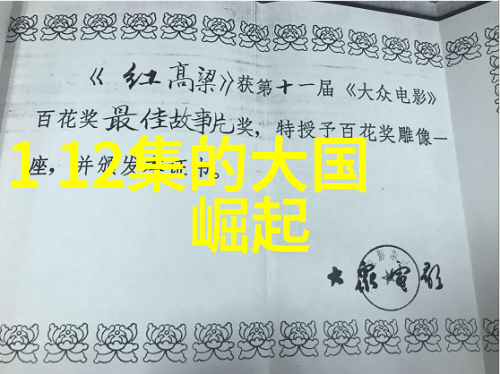 《红高粱》获第十一届《大众电影》
百花奖最佳故事片奖，特授予百花奖雕像一
座，并颁发
1-12集的大国
崛起
大众电影